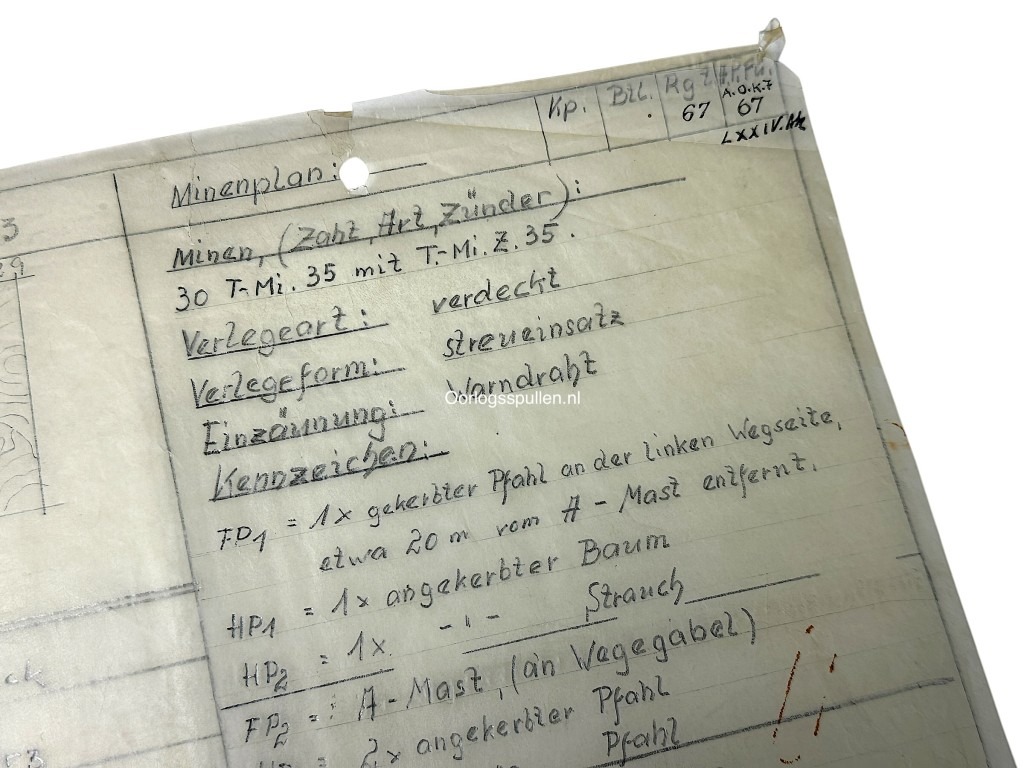 Kp. Btl. Rgt A.P.Fü.
67 A.O.K.7
67
LXXIV.AK
Minenplan:
Minen, (Zahl, Art, Zünder):
30 T.-Mi. 35 mit T.-Mi. Z. 35.
Verlegeart: verdeckt
Verlegeform: streueinsatz
Einzäunung: Warndraht
Kennzeichen:
FP1 = 1x gekerbter Pfahl an der linken Wegseite,
etwa 20 m vom A-Mast entfernt.
HP1 = 1x angekerbter Baum
HP2 = 1x -"- Strauch
FP2 =: A-Mast, (an Wegegabel)
= 2x angekerbter Pfahl
Pfahl
3
29
ck
53
Oorlogsspullen.nl